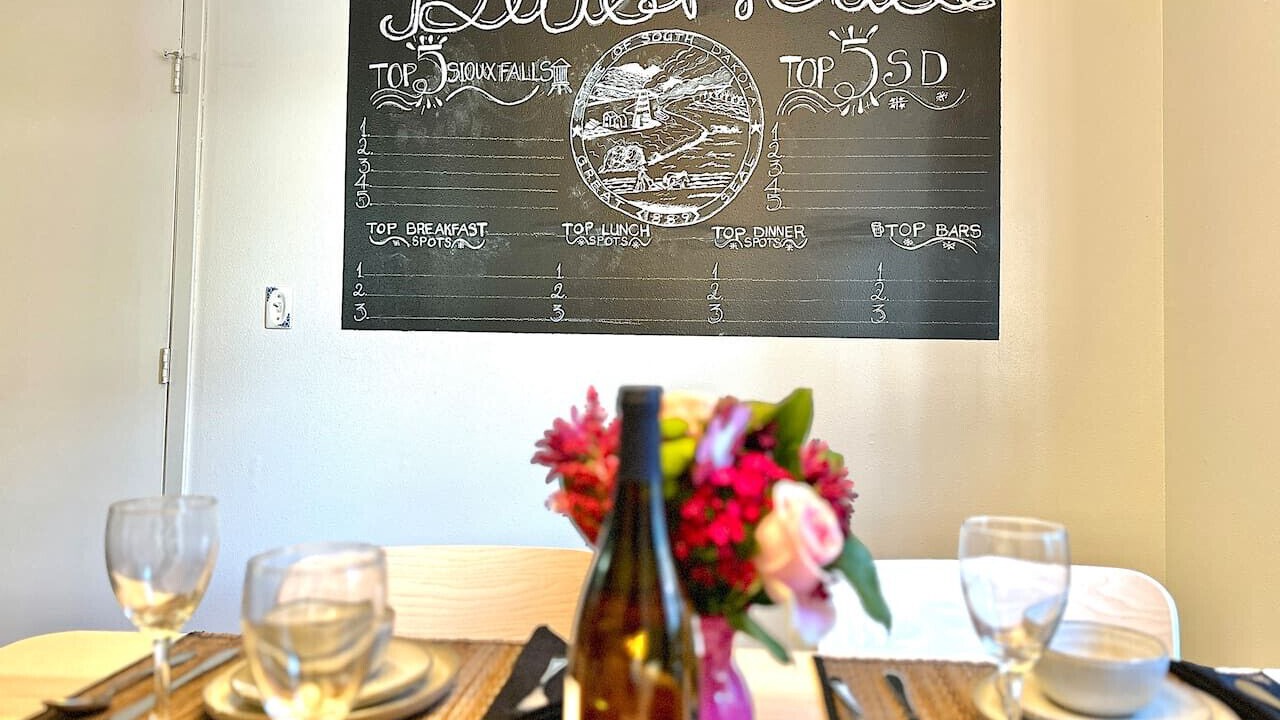 TOP 5 SIOUX FALLS
OF SOUTH DAKOTA
GREAT 1889 SEAL
TOP 5 SD
1.
2.
3
4
5
1
2.
3
4
5
TOP BREAKFAST
SPOTS
TOP LUNCH
SPOTS
TOP DINNER
SPOTS
TOP BARS
1
2.
3
1
2.
3
1
2.
3
1
2.
3